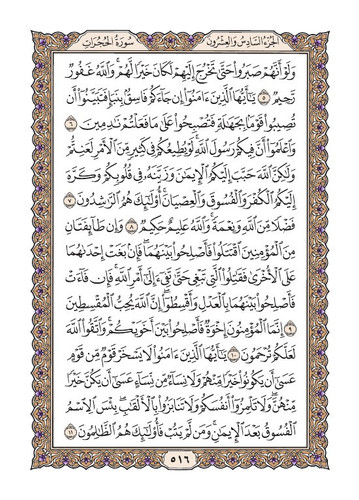 الجزء السادس والعشرون سورة الحجرات
وَلَوْ أَنَّهُمْ صَبَرُوا۟ حَتَّىٰ تَخْرُجَ إِلَيْهِمْ لَكَانَ خَيْرًا لَّهُمْ ۚ وَٱللَّهُ غَفُورٌ
رَّحِيمٌ ٥ يَٰٓأَيُّهَا ٱلَّذِينَ ءَامَنُوٓا۟ إِن جَآءَكُمْ فَاسِقٌۢ بِنَبَإٍ فَتَبَيَّنُوٓا۟ أَن
تُصِيبُوا۟ قَوْمًۢا بِجَهَٰلَةٍ فَتُصْبِحُوا۟ عَلَىٰ مَا فَعَلْتُمْ نَٰدِمِينَ ٦
وَٱعْلَمُوٓا۟ أَنَّ فِيكُمْ رَسُولَ ٱللَّهِ ۚ لَوْ يُطِيعُكُمْ فِى كَثِيرٍ مِّنَ ٱلْأَمْرِ لَعَنِتُّمْ
وَلَٰكِنَّ ٱللَّهَ حَبَّبَ إِلَيْكُمُ ٱلْإِيمَٰنَ وَزَيَّنَهُۥ فِى قُلُوبِكُمْ وَكَرَّهَ
إِلَيْكُمُ ٱلْكُفْرَ وَٱلْفُسُوقَ وَٱلْعِصْيَانَ ۚ أُو۟لَٰٓئِكَ هُمُ ٱلرَّٰشِدُونَ ٧
فَضْلًا مِّنَ ٱللَّهِ وَنِعْمَةً ۚ وَٱللَّهُ عَلِيمٌ حَكِيمٌ ٨ وَإِن طَآئِفَتَانِ
مِنَ ٱلْمُؤْمِنِينَ ٱقْتَتَلُوا۟ فَأَصْلِحُوا۟ بَيْنَهُمَا ۖ فَإِنۢ بَغَتْ إِحْدَىٰهُمَا
عَلَى ٱلْأُخْرَىٰ فَقَٰتِلُوا۟ ٱلَّتِى تَبْغِى حَتَّىٰ تَفِىٓءَ إِلَىٰٓ أَمْرِ ٱللَّهِ ۚ فَإِن فَآءَتْ
فَأَصْلِحُوا۟ بَيْنَهُمَا بِٱلْعَدْلِ وَأَقْسِطُوٓا۟ ۖ إِنَّ ٱللَّهَ يُحِبُّ ٱلْمُقْسِطِينَ
٩ إِنَّمَا ٱلْمُؤْمِنُونَ إِخْوَةٌ فَأَصْلِحُوا۟ بَيْنَ أَخَوَيْكُمْ ۚ وَٱتَّقُوا۟ ٱللَّهَ
لَعَلَّكُمْ تُرْحَمُونَ ١٠ يَٰٓأَيُّهَا ٱلَّذِينَ ءَامَنُوا۟ لَا يَسْخَرْ قَوْمٌ مِّن قَوْمٍ
عَسَىٰٓ أَن يَكُونُوا۟ خَيْرًا مِّنْهُمْ وَلَا نِسَآءٌ مِّن نِّسَآءٍ عَسَىٰٓ أَن يَكُنَّ خَيْرًا
مِّنْهُنَّ ۖ وَلَا تَلْمِزُوٓا۟ أَنفُسَكُمْ وَلَا تَنَابَزُوا۟ بِٱلْأَلْقَٰبِ ۖ بِئْسَ ٱلِٱسْمُ
ٱلْفُسُوقُ بَعْدَ ٱلْإِيمَٰنِ ۚ وَمَن لَّمْ يَتُبْ فَأُو۟لَٰٓئِكَ هُمُ ٱلظَّٰلِمُونَ ١١
٥١٦